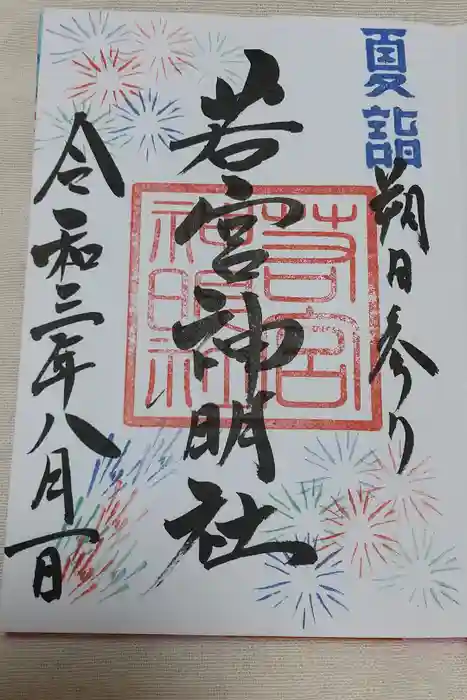 夏詣
朔日参り
若宮神明社
若宮
神明
令和三年八月一日